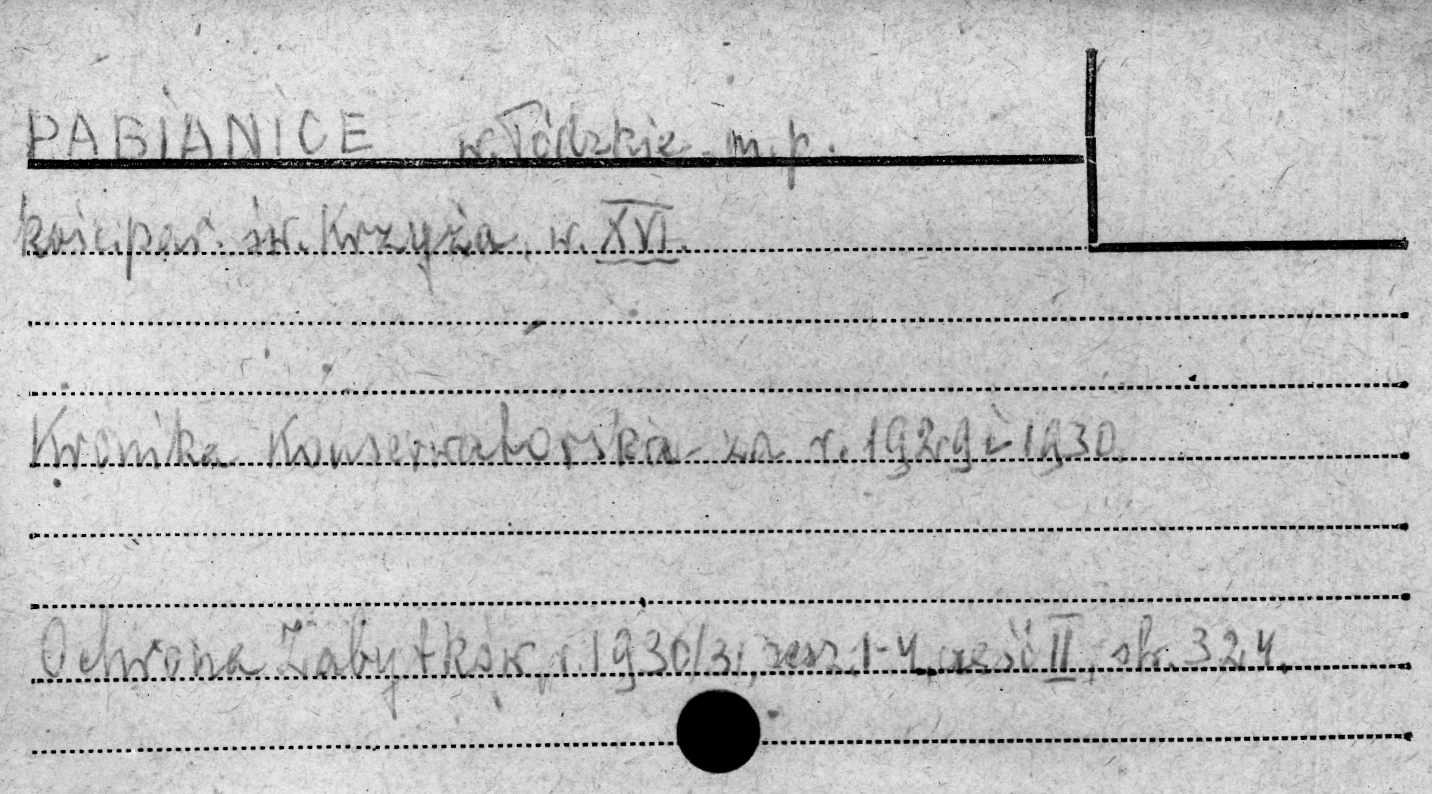 PABIANICE w. łódzkie m.p.
kośc.par. św. Krzyża w. XVI.
Kronika Konserwatorska za r. 1929 i 1930
Ochrona Zabytków, r. 1930/31, zesz. 1-4, część II, str. 324.